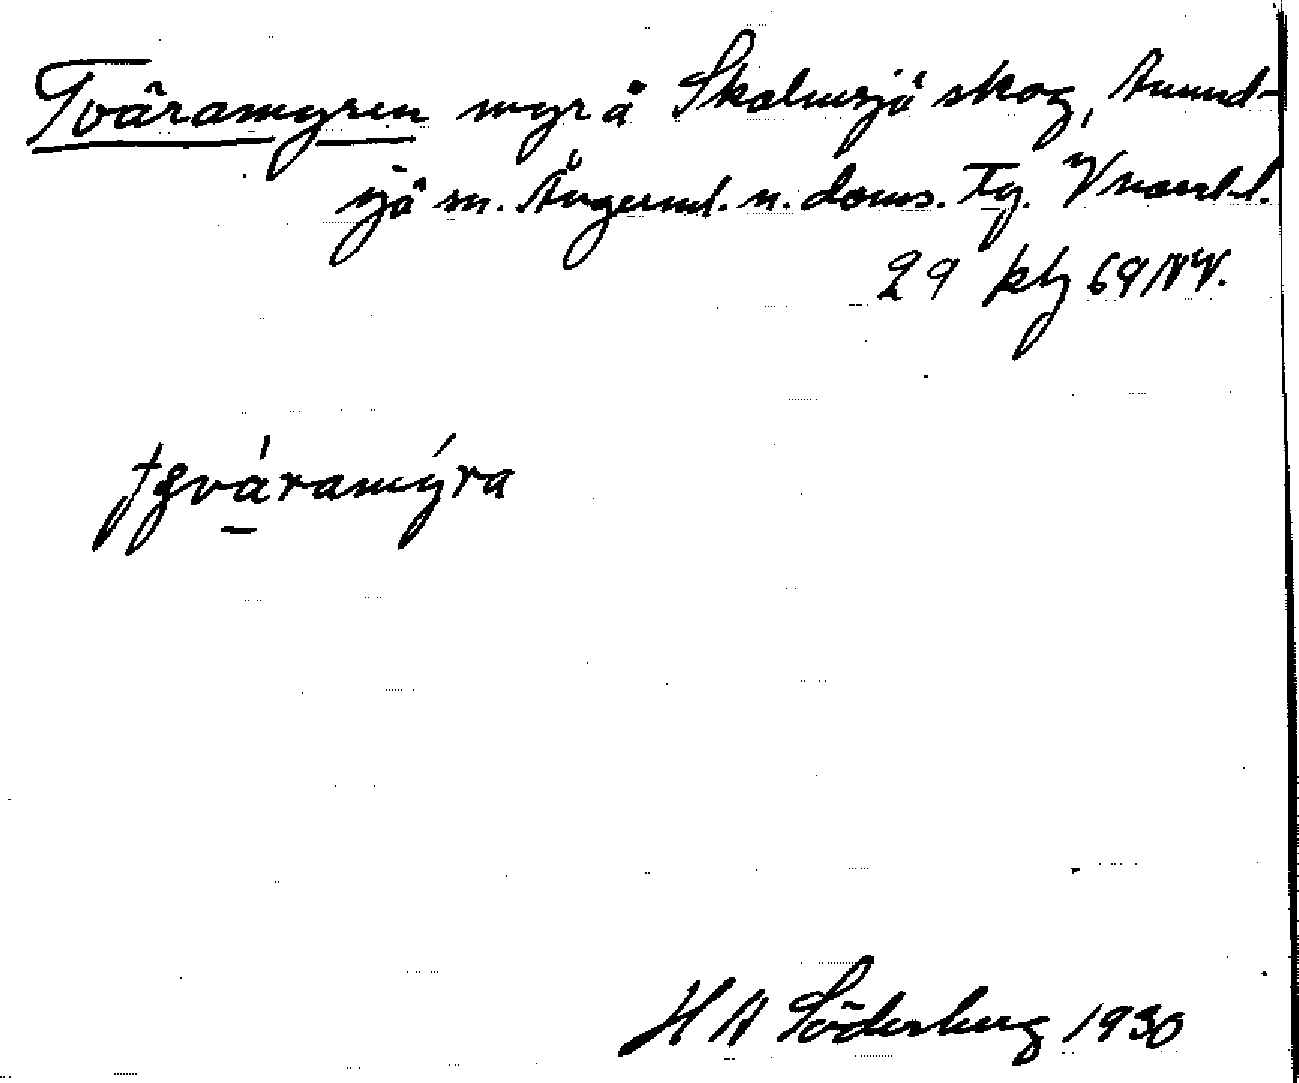 Tväramyren myr å Skalmsjö skog, Anund-
sjö sn. Ångerml. n. doms. Tg. V norrl.
29 kbl 69 NV.
tgváramýra
H A Söderberg 1930